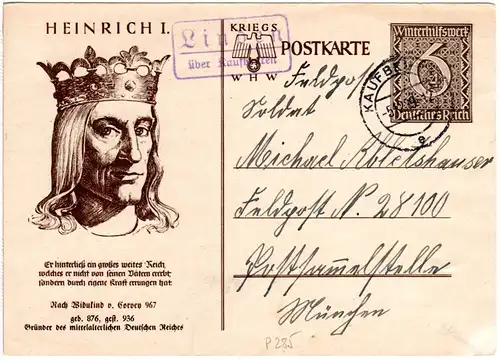 HEINRICH I.
KRIEGS
WHW
POSTKARTE
über Kaufbeuren
Winterhilfswerk
6
Deutsches Reich
KAUFBE
Feldpost
Soldat
Michael
Feldpost N. 28100
Postsammelstelle
München
Er hinterließ ein großes weites Reich,
welches er nicht von seinen Vätern ererbt,
sondern durch eigene Kraft errungen hat
Nach Widukind v. Corvey 967
geb. 876, gest. 936
Gründer des mittelalterlichen Deutschen Reiches
P 285